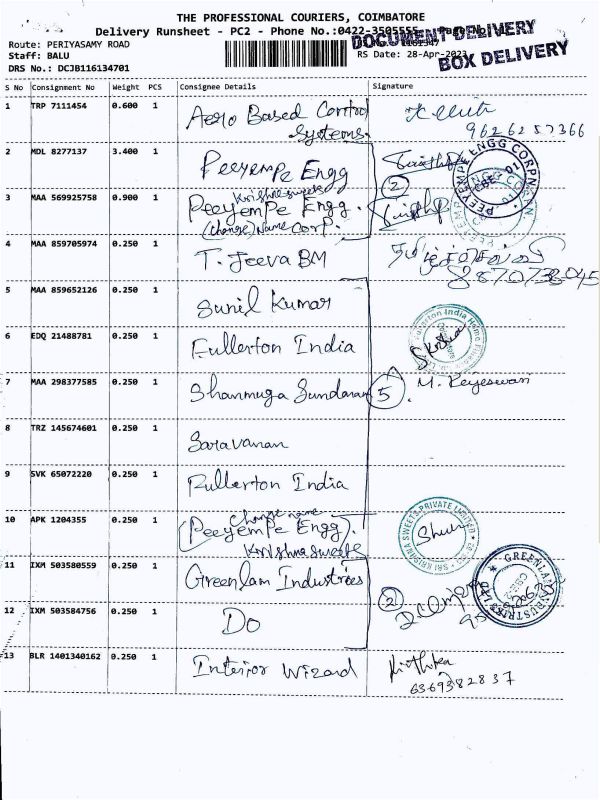 THE PROFESSIONAL COURIERS, COIMBATORE
Delivery Runsheet - PC2 - Phone No.:0422-3505555
DOCUMENT DELIVERY
BOX DELIVERY
Route: PERIYASAMY ROAD
Staff: BALU
RS Date: 28-Apr-2023
DRS No.: DCJB116134701
S No Consignment No Weight PCS Consignee Details Signature
1 TRP 7111454 0.600 1 Aero Based Control
Systems.
9626287366
2 MDL 8277137 3.400 1 Peeyempe Engg
2
PEEYEMPE ENGG CORPN
3 MAA 569925758 0.900 1 Krishna sweets
Peeyempe Engg.
(change) Name Corp.
4 MAA 859705974 0.250 1 T. Jeeva BM
5 MAA 859652126 0.250 1 Sunil Kumar
6 EDQ 21488781 0.250 1 Fullerton India
Fullerton India Home Finance
7 MAA 298377585 0.250 1 Shanmuga Sundaram
5
8 TRZ 145674601 0.250 1 Saravanan
9 SVK 65072220 0.250 1 Fullerton India
10 APK 1204355 0.250 1 Change name
(Peeyempe Engg).
Krishna sweets
SRI KRISHNA SWEETS PRIVATE LIMITED
11 IXM 503580559 0.250 1 Greenlam Industries
2
12 IXM 503584756 0.250 1 Do
13 BLR 1401340162 0.250 1 Interior Wizard
6369382837